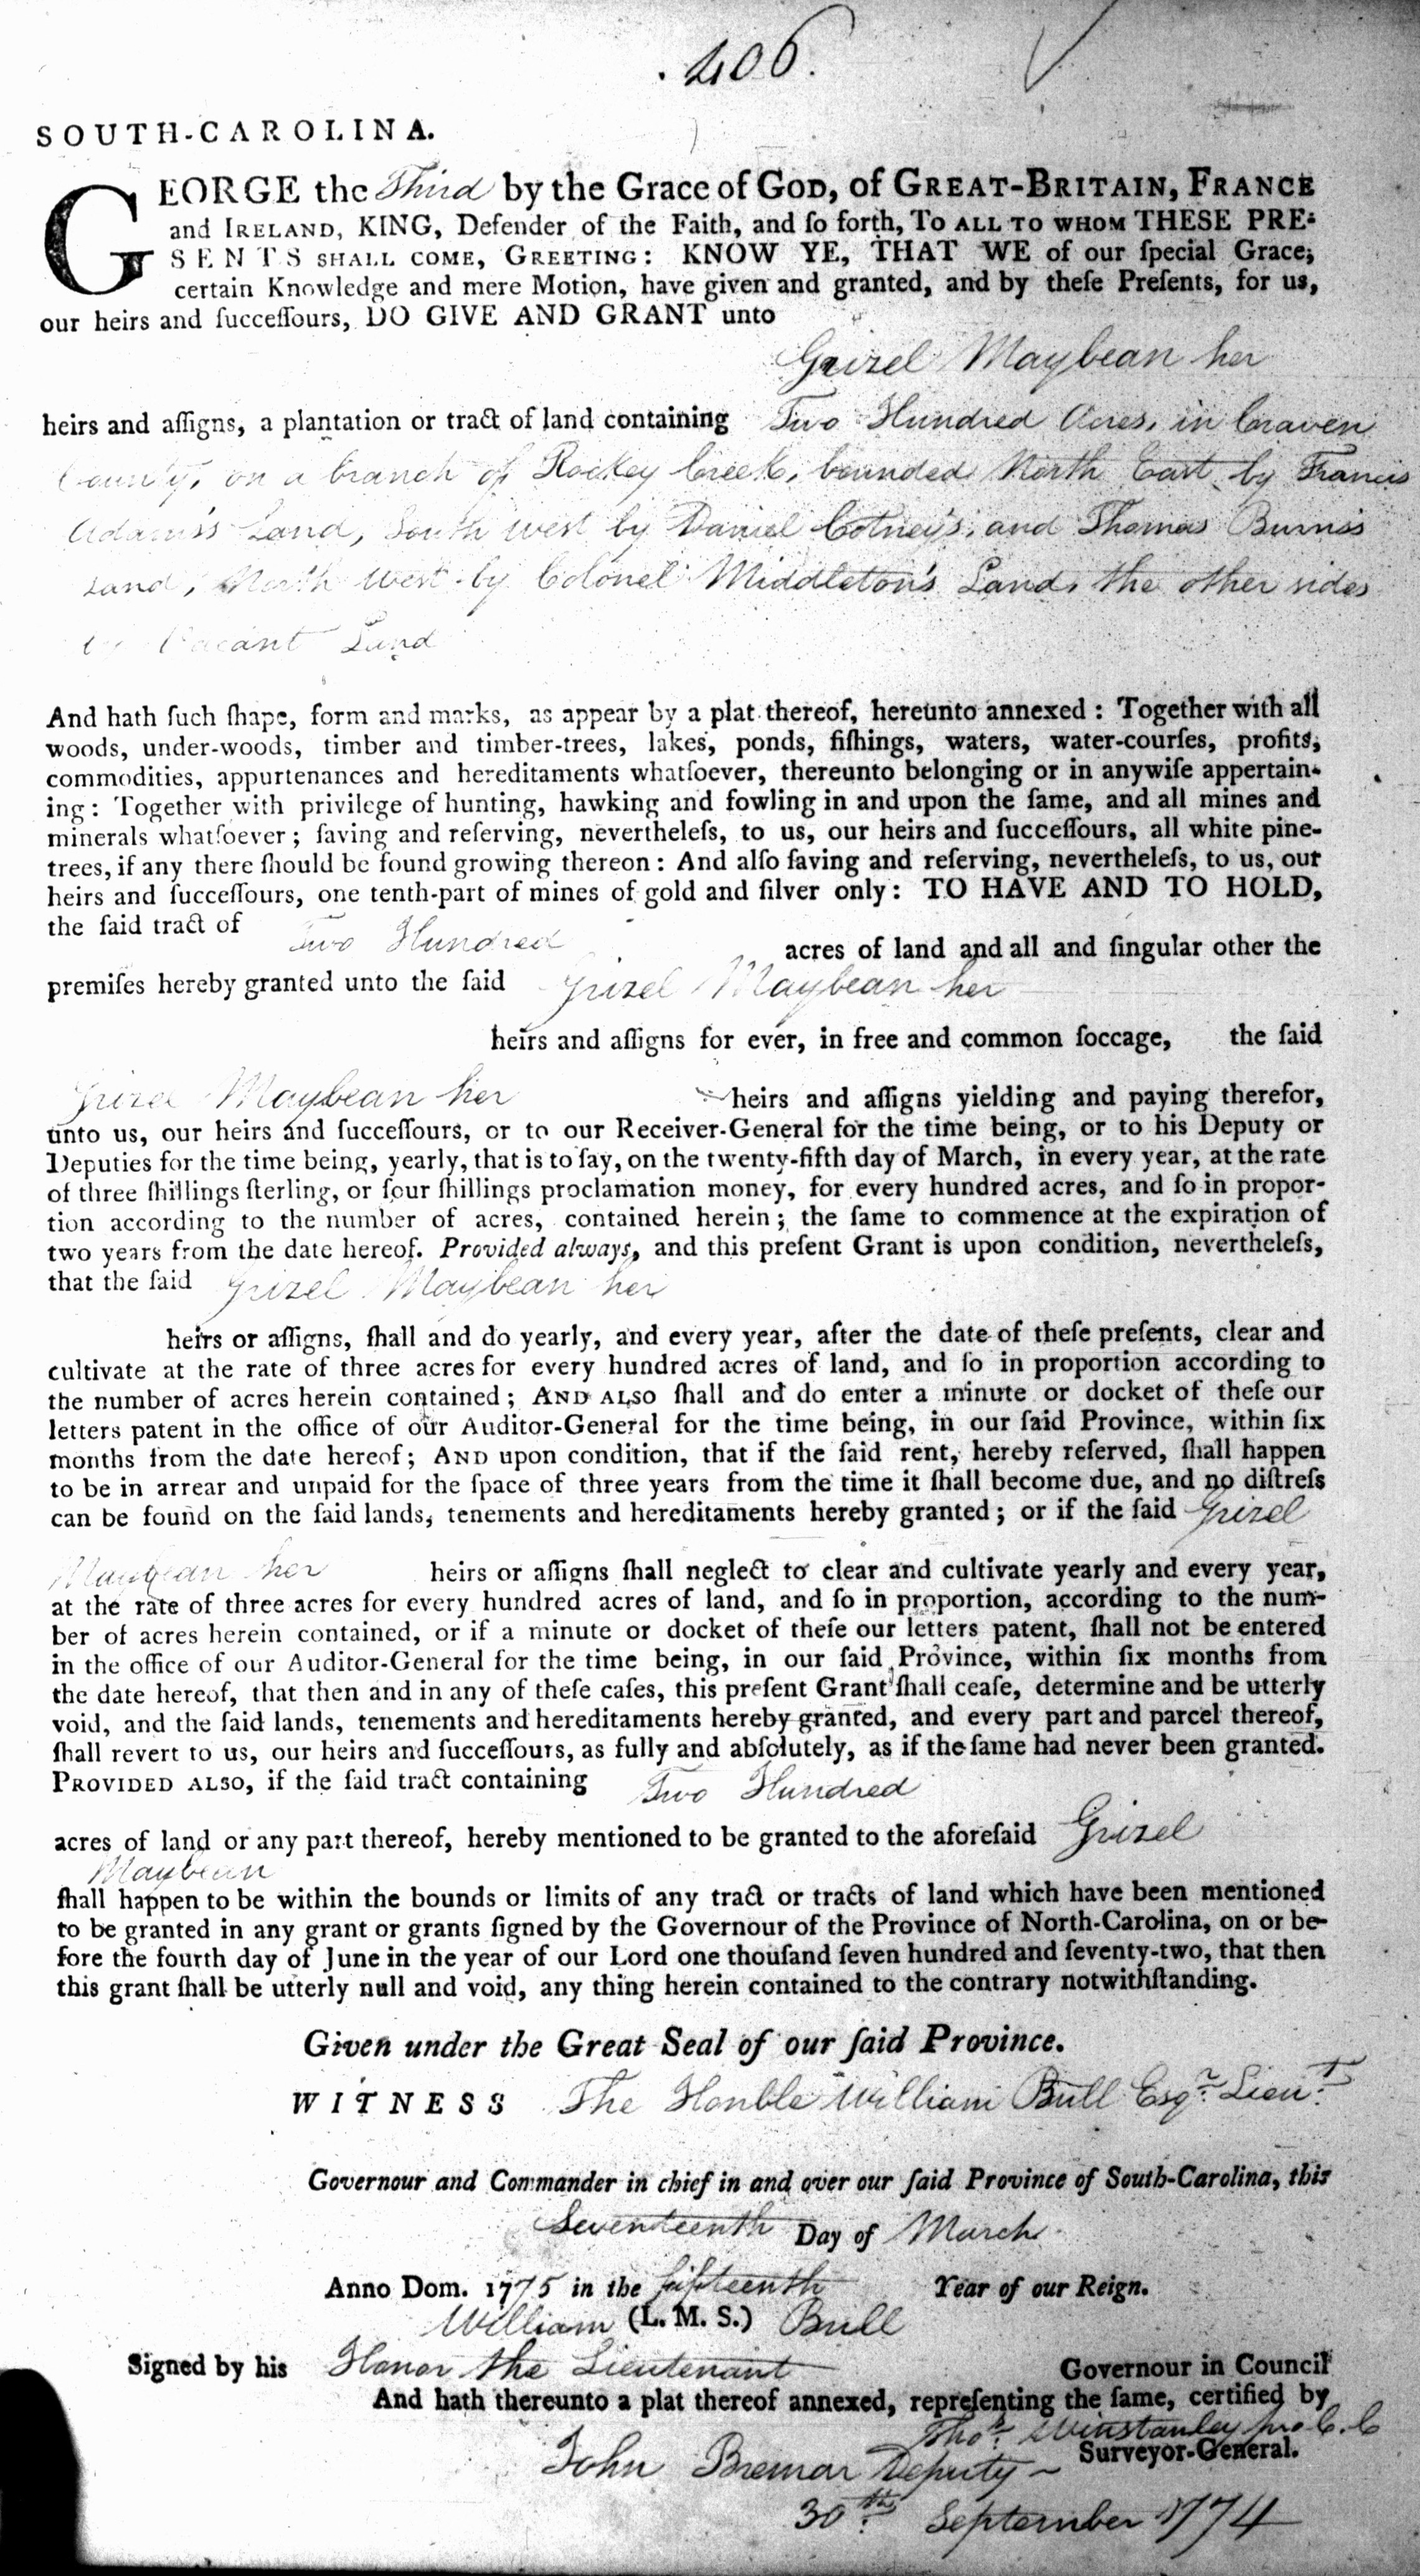 406.
SOUTH-CAROLINA.
GEORGE the Third by the Grace of GOD, of GREAT-BRITAIN, FRANCE
and IRELAND, KING, Defender of the Faith, and ſo forth, TO ALL TO WHOM THESE PRE-
SENTS SHALL COME, GREETING: KNOW YE, THAT WE of our ſpecial Grace,
certain Knowledge and mere Motion, have given and granted, and by theſe Preſents, for us,
our heirs and ſucceſſours, DO GIVE AND GRANT unto
Grizel Maybean her
heirs and aſſigns, a plantation or tract of land containing Two Hundred Acres, in Craven
County, on a branch of Rockey Creek, bounded North East by Francis
Adams's Land, South west by Daniel Cotney's, and Thomas Burns's
Land, North west by Colonel Middleton's Land, the other sides
by Vacant Land
And hath ſuch ſhape, form and marks, as appear by a plat thereof, hereunto annexed: Together with all
woods, under-woods, timber and timber-trees, lakes, ponds, fiſhings, waters, water-courſes, profits,
commodities, appurtenances and hereditaments whatſoever, thereunto belonging or in anywiſe appertain-
ing: Together with privilege of hunting, hawking and fowling in and upon the ſame, and all mines and
minerals whatſoever; ſaving and reſerving, nevertheleſs, to us, our heirs and ſucceſſours, all white pine-
trees, if any there ſhould be found growing thereon: And alſo ſaving and reſerving, nevertheleſs, to us, our
heirs and ſucceſſours, one tenth-part of mines of gold and ſilver only: TO HAVE AND TO HOLD,
the ſaid tract of Two Hundred acres of land and all and ſingular other the
premiſes hereby granted unto the ſaid Grizel Maybean her
heirs and aſſigns for ever, in free and common ſoccage, the ſaid
Grizel Maybean her heirs and aſſigns yielding and paying therefor,
unto us, our heirs and ſucceſſours, or to our Receiver-General for the time being, or to his Deputy or
Deputies for the time being, yearly, that is to ſay, on the twenty-fifth day of March, in every year, at the rate
of three ſhillings ſterling, or four ſhillings proclamation money, for every hundred acres, and ſo in propor-
tion according to the number of acres, contained herein; the ſame to commence at the expiration of
two years from the date hereof. Provided always, and this preſent Grant is upon condition, nevertheleſs,
that the ſaid Grizel Maybean her
heirs or aſſigns, ſhall and do yearly, and every year, after the date of theſe preſents, clear and
cultivate at the rate of three acres for every hundred acres of land, and ſo in proportion according to
the number of acres herein contained; AND ALSO ſhall and do enter a minute or docket of theſe our
letters patent in the office of our Auditor-General for the time being, in our ſaid Province, within ſix
months from the date hereof; AND upon condition, that if the ſaid rent, hereby reſerved, ſhall happen
to be in arrear and unpaid for the ſpace of three years from the time it ſhall become due, and no diſtreſs
can be found on the ſaid lands, tenements and hereditaments hereby granted; or if the ſaid Grizel
Maybean her heirs or aſſigns ſhall neglect to clear and cultivate yearly and every year,
at the rate of three acres for every hundred acres of land, and ſo in proportion, according to the num-
ber of acres herein contained, or if a minute or docket of theſe our letters patent, ſhall not be entered
in the office of our Auditor-General for the time being, in our ſaid Province, within ſix months from
the date hereof, that then and in any of theſe caſes, this preſent Grant ſhall ceaſe, determine and be utterly
void, and the ſaid lands, tenements and hereditaments hereby granted, and every part and parcel thereof,
ſhall revert to us, our heirs and ſucceſſours, as fully and abſolutely, as if the ſame had never been granted.
PROVIDED ALSO, if the ſaid tract containing Two Hundred
acres of land or any part thereof, hereby mentioned to be granted to the aforeſaid Grizel
Maybean
ſhall happen to be within the bounds or limits of any tract or tracts of land which have been mentioned
to be granted in any grant or grants ſigned by the Governour of the Province of North-Carolina, on or be-
fore the fourth day of June in the year of our Lord one thouſand ſeven hundred and ſeventy-two, that then
this grant ſhall be utterly null and void, any thing herein contained to the contrary notwithſtanding.
Given under the Great Seal of our ſaid Province.
WITNESS The Honble William Bull Esqr. Lieut.
Governour and Commander in chief in and over our ſaid Province of South-Carolina, this
Seventeenth Day of March
Anno Dom. 1775 in the fifteenth Year of our Reign.
William (L. M. S.) Bull
Signed by his Honor the Lieutenant Governour in Council
And hath thereunto a plat thereof annexed, repreſenting the ſame, certified by
Thos. Winstanley pro C. C
John Bremar Deputy Surveyor-General.
30th. September 1774